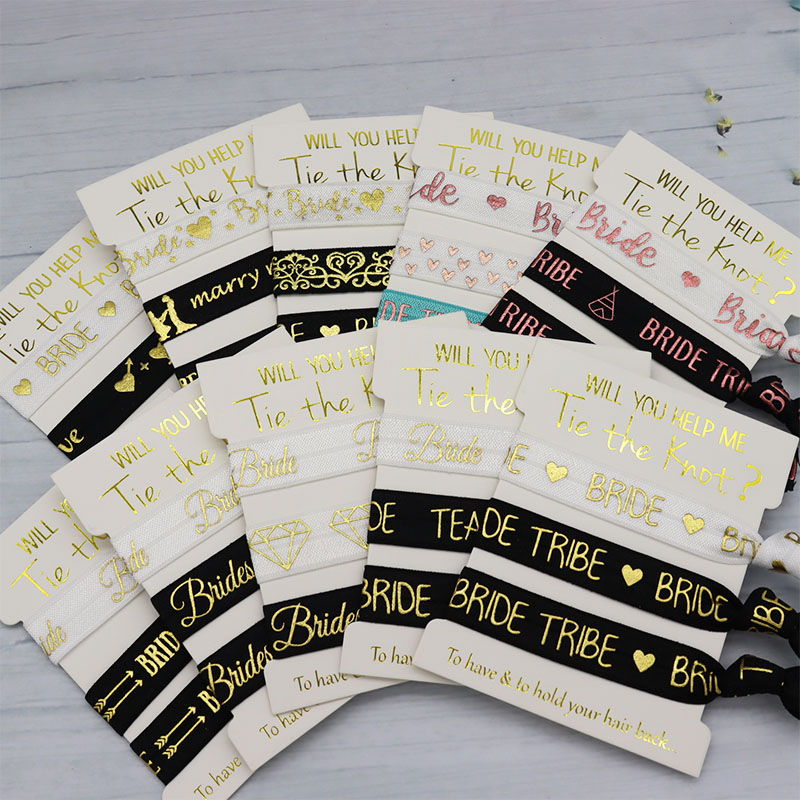 WILL YOU HELP
Tie the Kno
BRIDE
ve
WILL YOU HELP ME
Tie the Kno
Bride Brid
marry
WILL YOU HELP
Tie the K
Bride
BRIDE
WILL YOU HELP ME
Tie the
Bride Bride
DE TRIBE
WILL YOU HELP ME
Tie the Knot?
Bride Bride
TRIBE BRIDE TRIB
TRIBE BRIDE TRI
WILL YOU
Tie the
Bride
BRID
B
To have
WILL YOU HELP
Tie the K
Bride
Brides
Brides
To have
WILL YOU HELP
Tie the K
Bride
Brides
To have &
WILL YOU HELP
Tie the
Bride
DE TEA
BRIDE
To have
WILL YOU HELP ME
Tie the Knot?
DE BRIDE BRID
DE TRIBE BRIDE TRIBE
BRIDE TRIBE BRID T
To have & to hold your hair back..